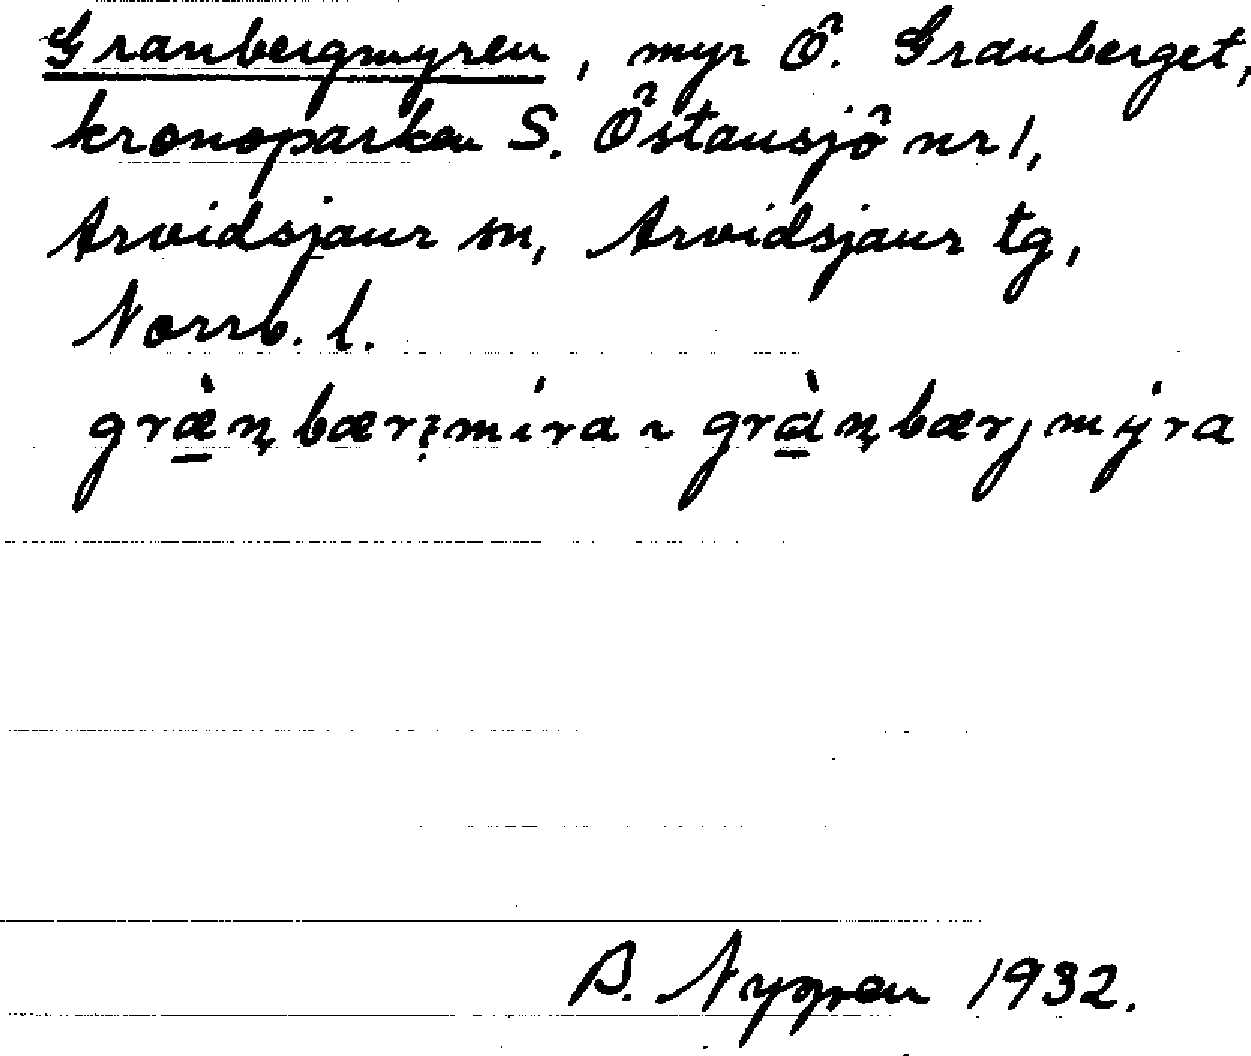 Granbergmyren, myr Ö. Granberget,
kronoparken S. Östansjö nr 1,
Arvidsjaur sn, Arvidsjaur tg,
Norrb. l.
græ̀ṇbærɟmira ~ grànbærjmyra
B. Nygren 1932.